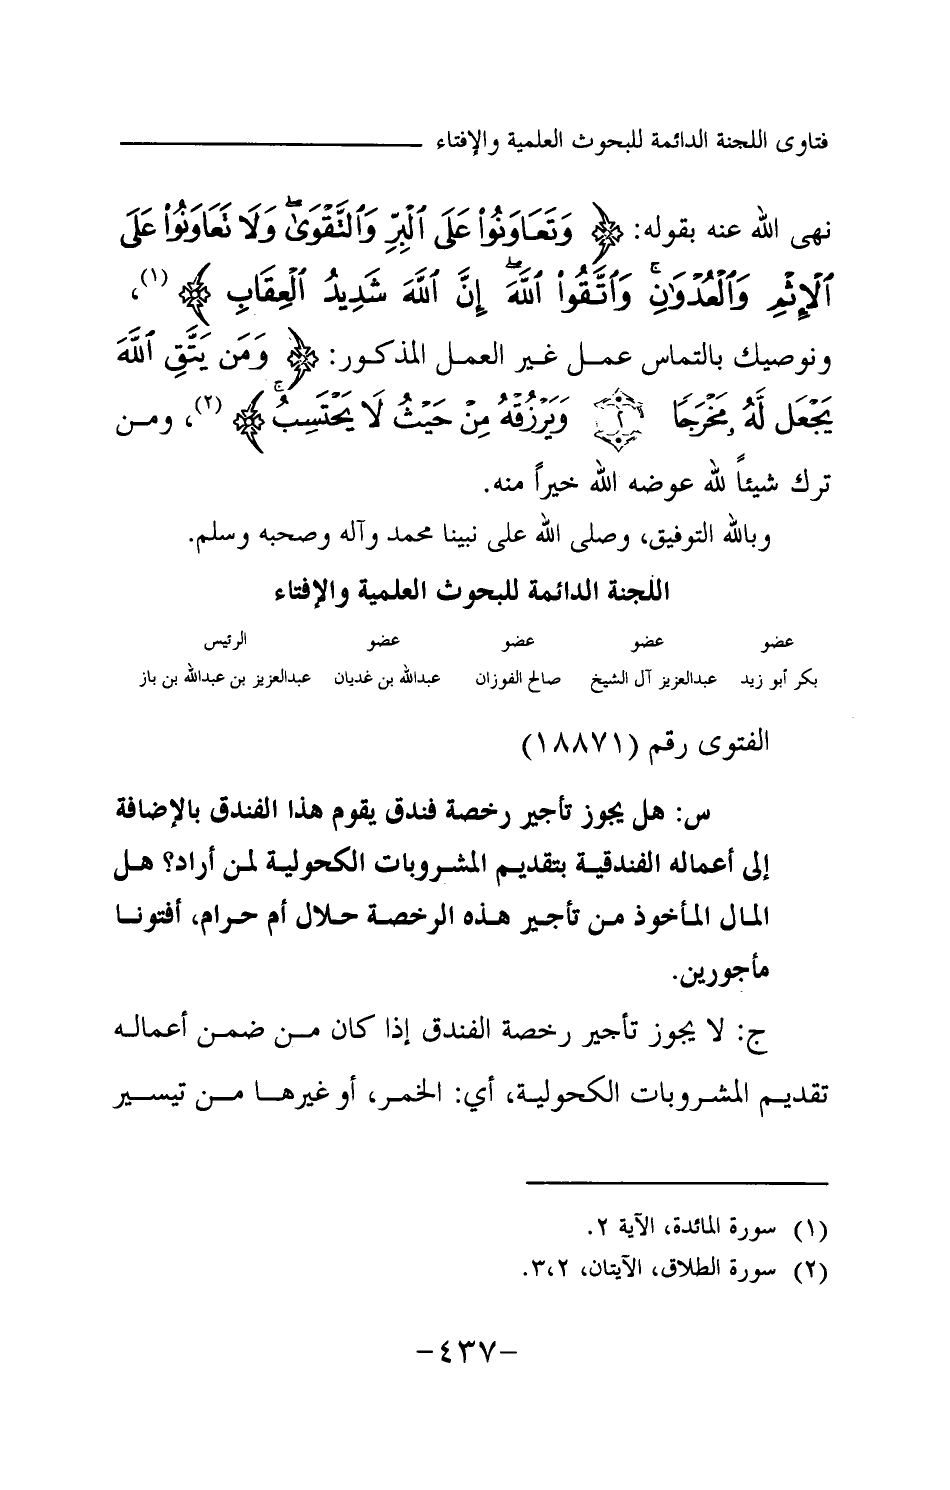 فتاوى اللجنة الدائمة للبحوث العلمية والإفتاء
نهى الله عنه بقوله: ﴿ وَتَعَاوَنُواْ عَلَى ٱلْبِرِّ وَٱلتَّقْوَىٰۖ وَلَا تَعَاوَنُواْ عَلَى
ٱلْإِثْمِ وَٱلْعُدْوَٰنِۚ وَٱتَّقُواْ ٱللَّهَۖ إِنَّ ٱللَّهَ شَدِيدُ ٱلْعِقَابِ ﴾(١)،
ونوصيك بالتماس عمل غير العمل المذكور: ﴿ وَمَن يَتَّقِ ٱللَّهَ
يَجْعَل لَّهُۥ مَخْرَجًا ٢ وَيَرْزُقْهُ مِنْ حَيْثُ لَا يَحْتَسِبُۚ ﴾(٢)، ومن
ترك شيئاً لله عوضه الله خيراً منه.
وبالله التوفيق، وصلى الله على نبينا محمد وآله وصحبه وسلم.
اللجنة الدائمة للبحوث العلمية والإفتاء
عضو عضو عضو عضو الرئيس
بكر أبو زيد عبدالعزيز آل الشيخ صالح الفوزان عبدالله بن غديان عبدالعزيز بن عبدالله بن باز
الفتوى رقم (١٨٨٧١)
س: هل يجوز تأجير رخصة فندق يقوم هذا الفندق بالإضافة
إلى أعماله الفندقية بتقديم المشروبات الكحولية لمن أراد؟ هل
المال المأخوذ من تأجير هذه الرخصة حلال أم حرام، أفتونا
مأجورين.
ج: لا يجوز تأجير رخصة الفندق إذا كان من ضمن أعماله
تقديم المشروبات الكحولية، أي: الخمر، أو غيرها من تيسير
(١) سورة المائدة، الآية ٢.
(٢) سورة الطلاق، الآيتان، ٣،٢.
-٤٣٧-